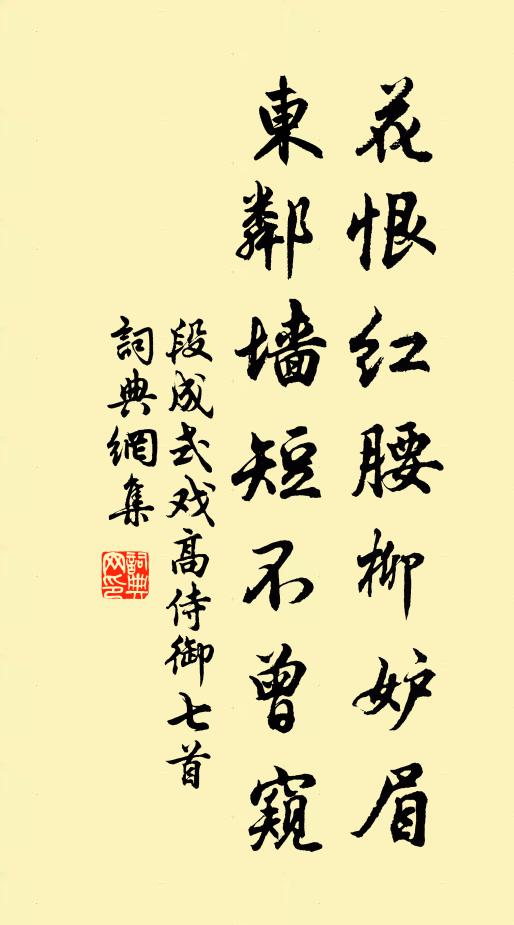 花恨红腰柳妒眉
東鄰墙短不曾窺
段成式戏高侍御七首
詞典網集
詞典网印